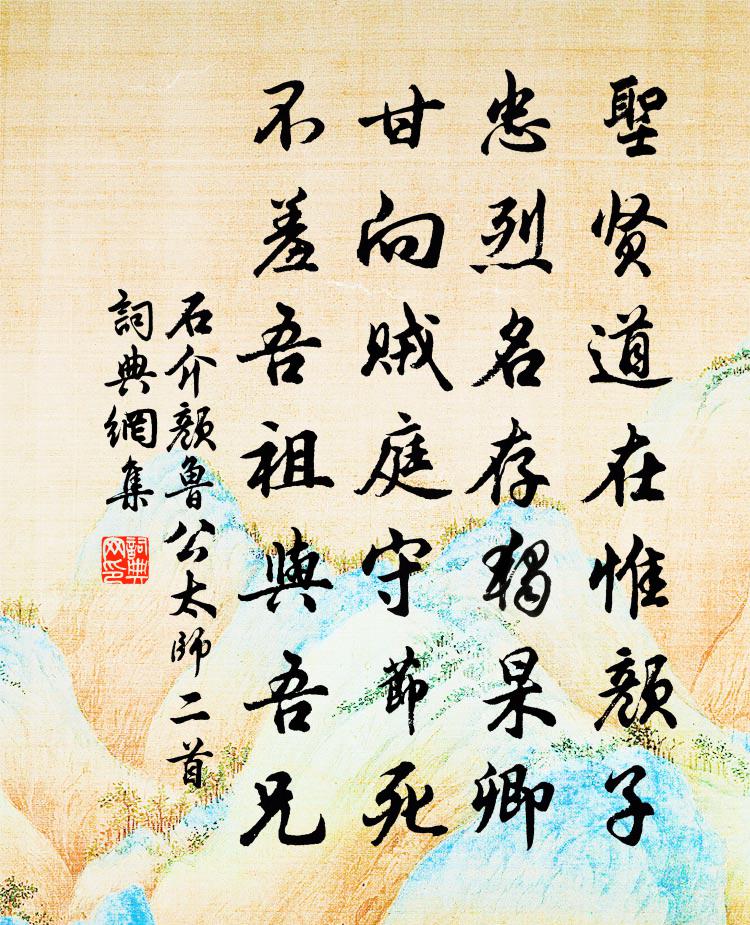 聖贤道在惟颜子
忠烈名存独杲卿
甘向贼庭守節死
不羞吾祖與吾兄
石介颜魯公太師二首
詞典網集
詞典网印